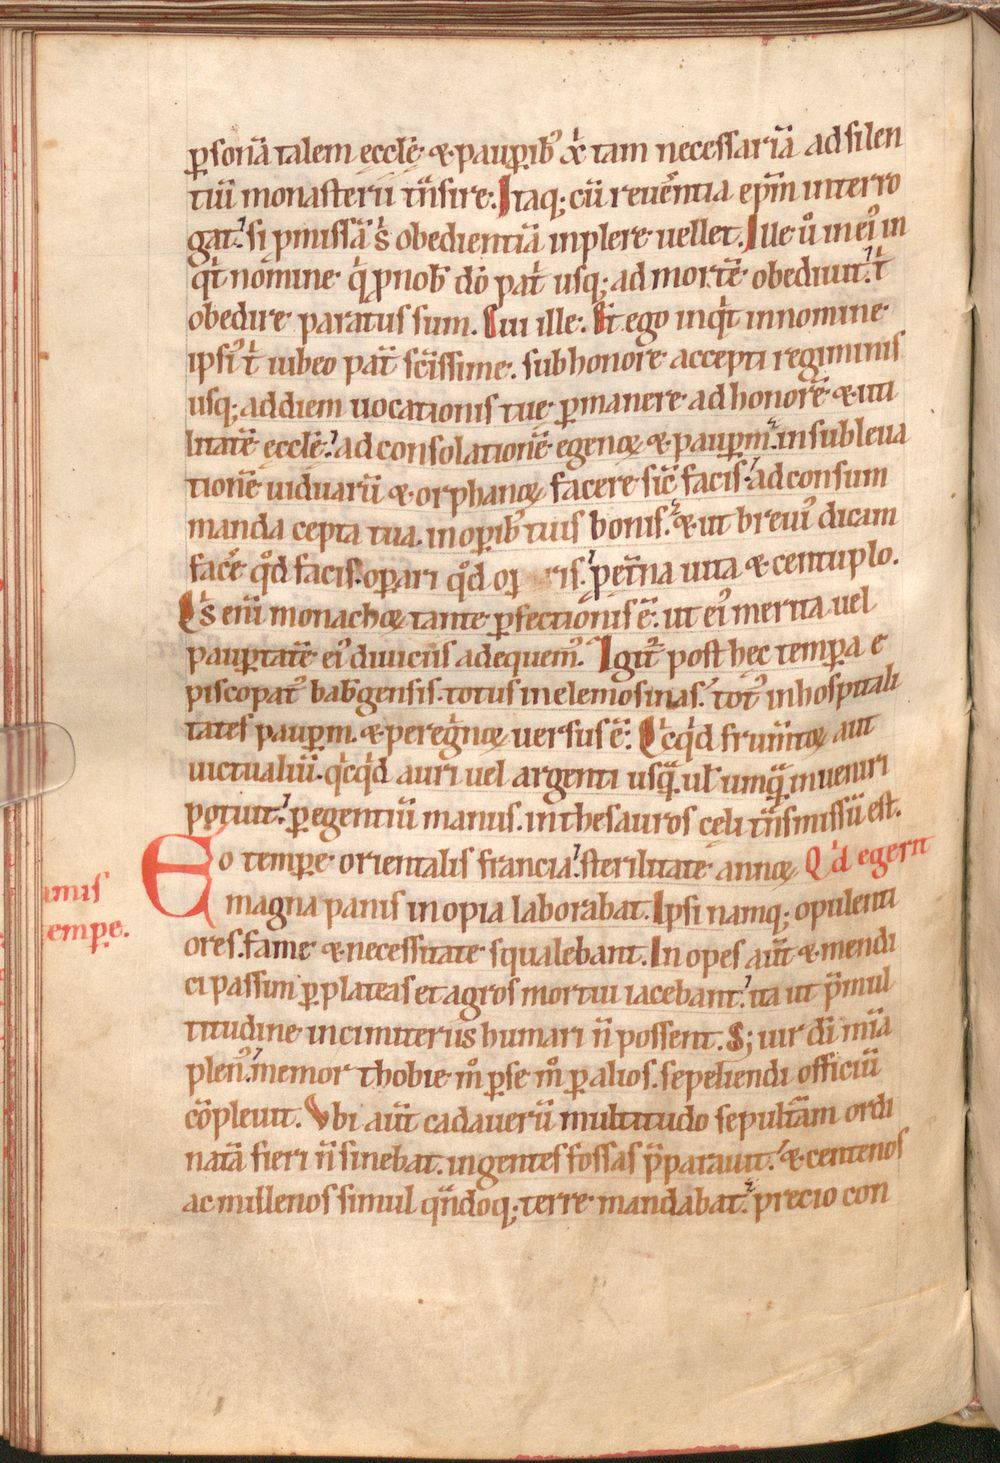 ꝑsonā talem eccl̄e ⁊ pauꝑibꝰ xͥ tam necessariā ad silen
tiū monasterii tn̄sire. Itaq; cū reuēntia ep̄m interro
gat. si p̄missā sͥ obedientiā inplere uellet. Ille uͦ in eiꝰ in
qͥt nomine qͥ ꝓ nob̄ dō patͥ usq; ad mortē obediuit. tͥ
obedire paratus sum. Cui ille. Et ego inqͥt in nomine
ipsiꝰ tͥ iubeo pat̄ sc̄issime. sub honore accepti regiminis
usq; ad diem uocationis tue ꝑmanere ad honorē ⁊ uti
litatē eccl̄e. ad consolationē egenoꝝ ⁊ pauꝑm. in subleua
tionē uiduarū ⁊ orphanoꝝ facere sic̄ facis. ad consum
manda cepta tua. in oꝑibꝰ tuis bonis. ⁊ ut breuiꝰ dicam
facē qͦd facis. oꝑari qͦd ris. ꝓ et̄na uita ⁊ centuplo.
Qͥs eni̅ monachoꝝ tante ꝑfectionis ē. ut eiꝰ merita uel
pauꝑtatē eiꝰ diuiciis adequemꝰ. Igitꝰ post hec temꝑa e
piscopatꝰ bab̄gensis. totus in elemosinas. totꝰ in hospitali
tates pauꝑm. ⁊ peregͥnoꝝ uersus ē. Qͥcqͥd frum̄toꝝ aut
uictualiū. qͥcqͥd auri uel argenti usqͣ uł umqͣ inueniri
potuit. ꝑ egentiū manus. in thesauros celi tn̄smissū est.
Eo tempe orientalis francia. sterilitate annoꝝ Qͥd egerit
magna panis inopia laborabat. Ipsi namq; opulenti
amis
tempe.
ores. fame ⁊ necessitate squalebant. In opes aut̄ ⁊ mendi
ci passim ꝑ plateas et agros mortui iacebant. ita ut p̄ mul
titudine in cimiteriis humari n̄ possent. S; uir dī mīa
plenꝰ. memor thobie mͦ ꝑ se mͦ ꝑ alios. sepeliendi officiū
cōpleuit. Vbi aut̄ cadauerū multitudo sepultām ordi
natā fieri n̄ sinebat. ingentes fossas p̄parauit. ⁊ centenos
ac millenos simul qn̄doq; terre mandabat. precio con